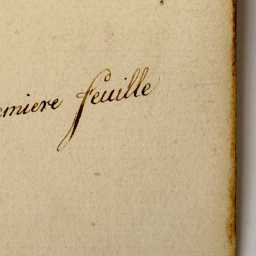 emiere feuille